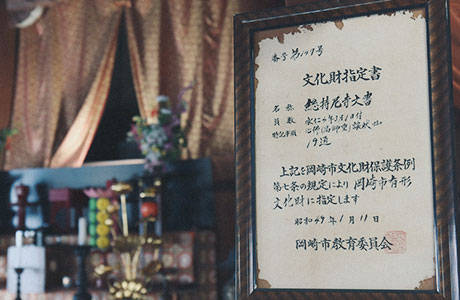 番号 第149号
文化財指定書
名称 総持尼寺文書
員数
特記事項
19通
上記を岡崎市文化財保護条例
第七条の規定により岡崎市有形
文化財に指定します
昭和49年1月11日
岡崎市教育委員会